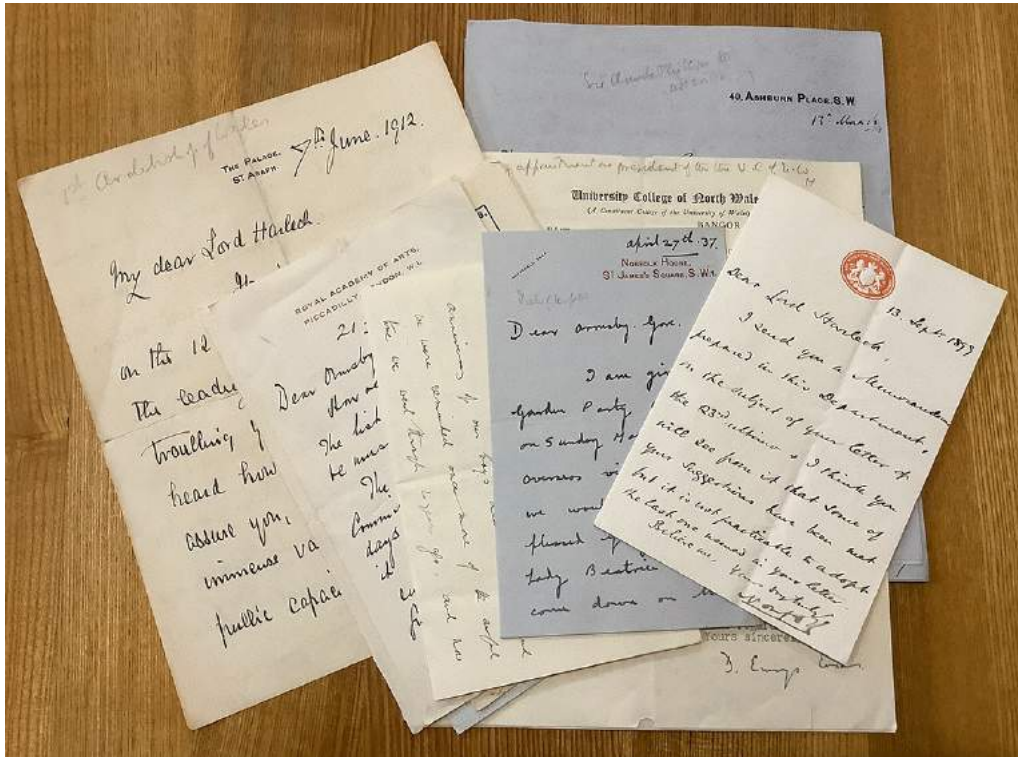 1st Archbishop of Wales
THE PALACE,
ST. ASAPH.
7th June. 1912.
My dear Lord Harlech.
on the 12
the leadi
troubling y
heard how
assure you,
immense va
public capaci
ROYAL ACADEMY OF ARTS,
PICCADILLY, LONDON, W.1.
21
Dear Ormsby
The list
be
The
Commi
days
it
anniversary of our boys
we were reminded once more of the awful
time we went through 20 years ago, and how
40, ASHBURN PLACE. S.W.
13th March
appointment as president of the U.C. of N.W.
University College of North Wale
(A Constituent College of the University of Wales)
BANGOR
Yours sincerel
april 27th. 37.
NORFOLK HOUSE,
ST JAMES'S SQUARE, S.W.1.
Dear Ormsby. Gore.
I am givi
Garden Party
on Sunday Ma
overseas vi
we woul
pleased if
Lady Beatrice
come down on
13. Sept. 1893
Dear Lord Harlech,
I send you a Memorandum
prepared in this Department,
on the subject of your letter of
the 23rd ultimo & I think you
will see from it that some of
your suggestions have been met
but it is not practicable to adopt
the last one named in your letter.
Believe me, yours very truly